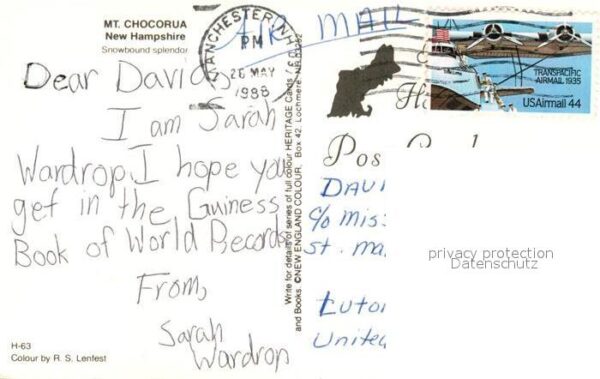 MT. CHOCORUA
New Hampshire
Snowbound splendor
MANCHESTER, NH
PM
26 MAY
1988
AIR MAIL
TRANSPACIFIC
AIRMAIL 1935
USAirmail 44
Dear David
I am Sarah
Wardrop, I hope you
get in the Guiness
Book of World Records
From,
Sarah
Wardrop
H-63
Colour by R. S. Lenfest
Write for details of series of full colour HERITAGE Cards
and Books. ©NEW ENGLAND COLOUR. Box 42. Lochmere. NH
Pos
DAVI
c/o Mis
St. Ma
Luto
United
privacy protection
Datenschutz